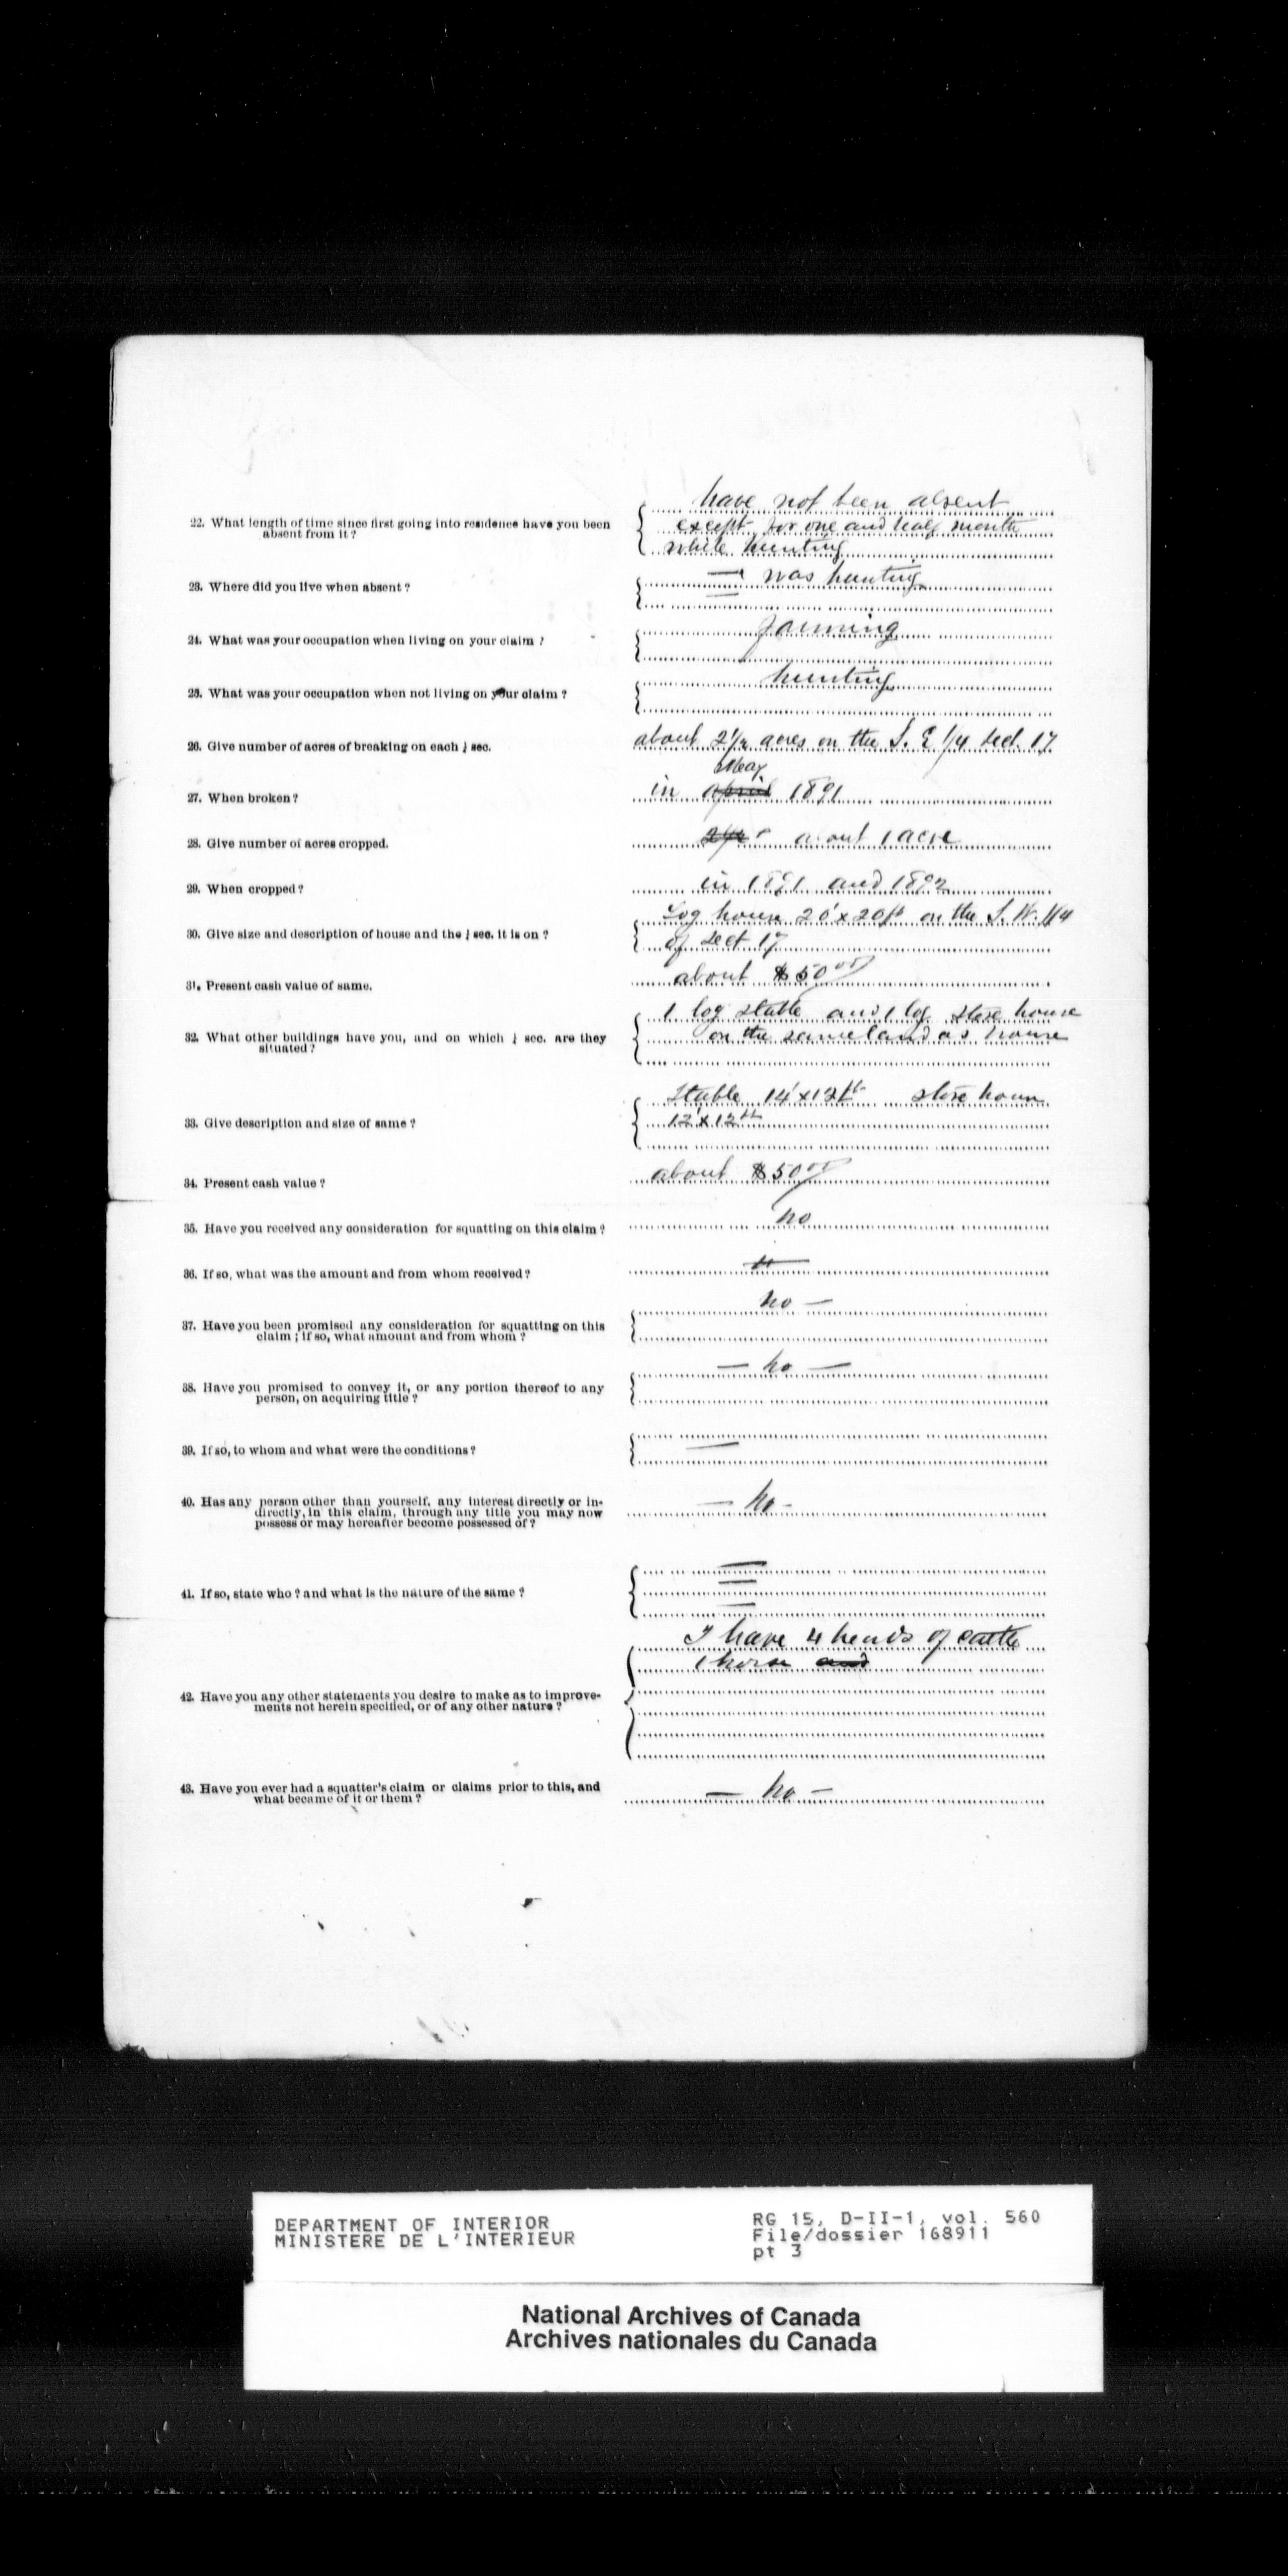 have not been absent
22. What length of time since first going into residence have you been
absent from it?
except for one and half month
while hunting
23. Where did you live when absent?
— was hunting
24. What was your occupation when living on your claim?
farming
25. What was your occupation when not living on your claim?
hunting
26. Give number of acres of breaking on each ¼ sec.
about 2½ acres on the S. E 1/4 Sect. 17
May
27. When broken?
in april 1891
28. Give number of acres cropped.
2½ about 1 acre
29. When cropped?
in 1891 and 1892
30. Give size and description of house and the ¼ sec. it is on?
Log house 20'x20ft on the S. W. 1/4
of Sect 17
31. Present cash value of same.
about $50 00
32. What other buildings have you, and on which ¼ sec. are they
situated?
1 log stable and 1 log store house
on the same land as house
33. Give description and size of same?
Stable 14'x12ft store house
12'x12ft
34. Present cash value?
about $50 00
35. Have you received any consideration for squatting on this claim?
no
36. If so, what was the amount and from whom received?
37. Have you been promised any consideration for squatting on this
claim; if so, what amount and from whom?
no —
38. Have you promised to convey it, or any portion thereof to any
person, on acquiring title?
— no —
39. If so, to whom and what were the conditions?
—
40. Has any person other than yourself, any interest directly or in-
directly, in this claim, through any title you may now
possess or may hereafter become possessed of?
— no -
41. If so, state who? and what is the nature of the same?
—
—
—
42. Have you any other statements you desire to make as to improve-
ments not herein specified, or of any other nature?
I have 4 heads of cattle
1 horse and
43. Have you ever had a squatter's claim or claims prior to this, and
what became of it or them?
— no —
DEPARTMENT OF INTERIOR
MINISTERE DE L'INTERIEUR
RG 15, D-II-1, vol. 560
File/dossier 168911
pt 3
National Archives of Canada
Archives nationales du Canada